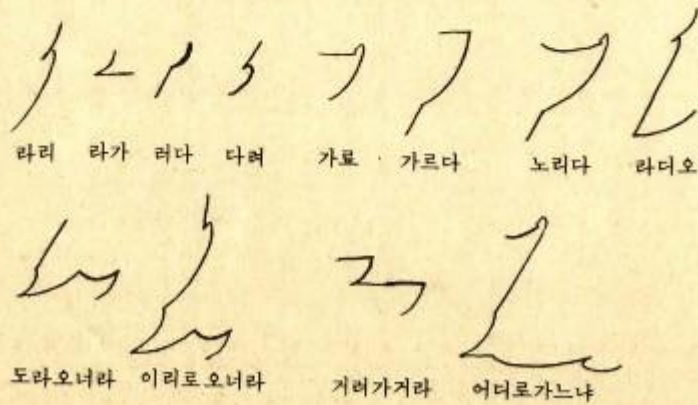 라리 라가 러다 다려 가료 가르다 노리다 라디오
도라오너라 이리로오너라 거려가거라 어디로가느냐